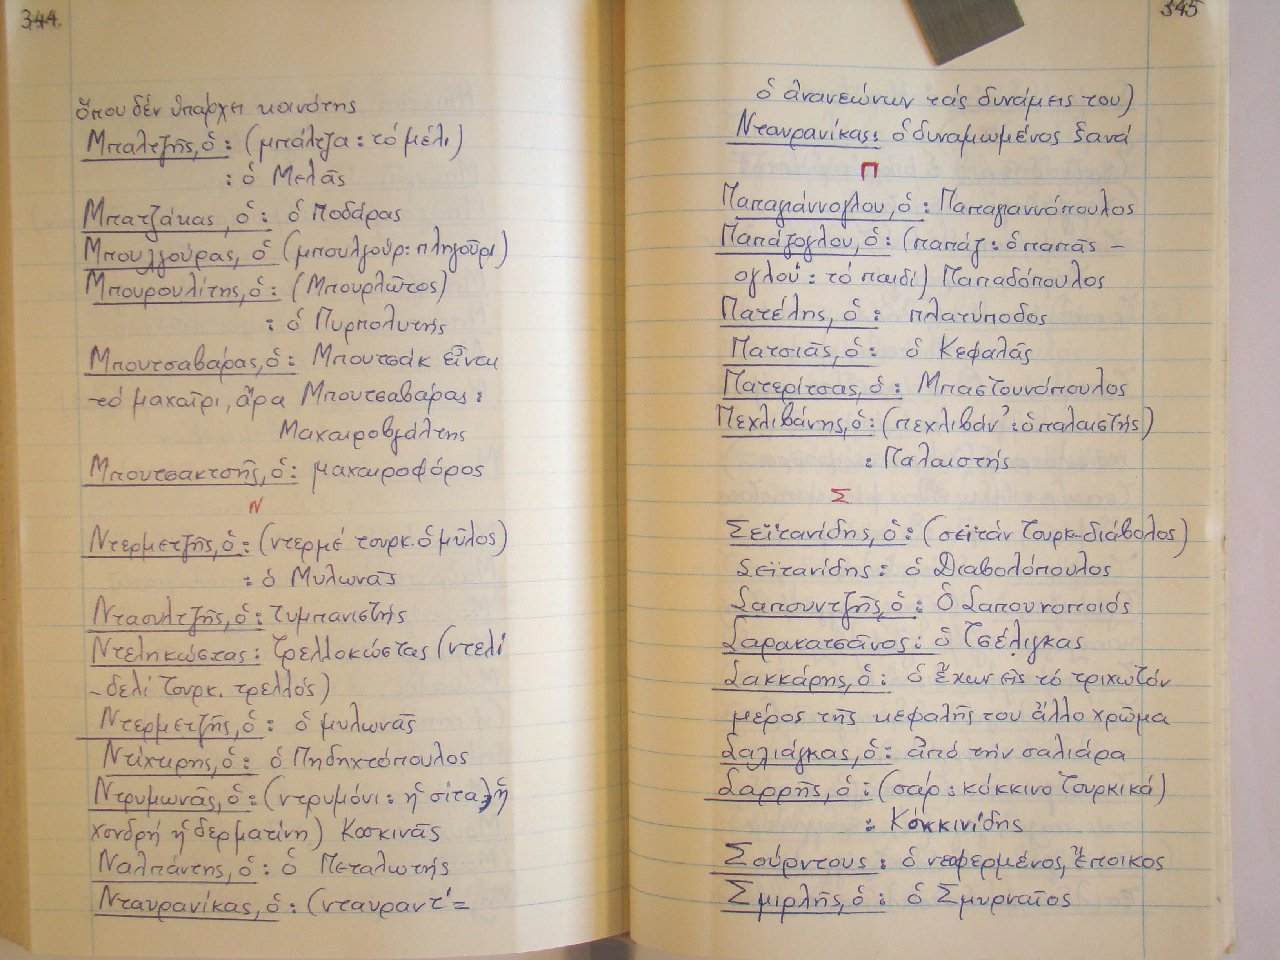 344
ὅπου δέν ὑπάρχει κοινότης
Μπαλτζῆς, ὁ: (μπάλτζα: τό μέλι)
: ὁ Μελᾶς
Μπατζάκας, ὁ: ὁ Ποδάρας
Μπουλγούρας, ὁ (μπουλγούρ: πληγοῦρι)
Μπουρουλίτης, ὁ: (Μπουρλῶτος)
: ὁ Πυρπολυτής
Μπουτσαβάρας, ὁ: Μπουτσάκ εἶναι
τό μαχαῖρι, ἄρα Μπουτσαβάρας:
Μαχαιροβγάλτης
Μπουτσακτσῆς, ὁ: μαχαιροφόρος
Ν
Ντερμετζῆς, ὁ: (ντερμέ τουρκ. ὁ μῦλος)
: ὁ Μυλωνᾶς
Νταουλτζῆς, ὁ: Τυμπανιστής
Ντεληκώστας: Τρελλοκώστας (ντελί
-δελί Τουρκ. τρελλός)
Ντερμετζῆς, ὁ: ὁ μυλωνᾶς
Ντίχτιρης, ὁ: ὁ Πηδηχτόπουλος
Ντρυμωνᾶς, ὁ: (ντρυμόνι: ἡ σίτα, ἡ
χονδρή ἡ δερματίνη) Κοσκινᾶς
Ναλπάντης, ὁ: ὁ Πεταλωτής
Νταυρανίκας, ὁ: (νταυραντ' =
345
ὁ ἀνανεώνων τάς δυνάμεις του)
Νταυρανίκας: ὁ δυναμωμένος ξανά
Π
Παπαγιάννογλου, ὁ: Παπαγιαννόπουλος
Παπάζογλου, ὁ: (παπάζ: ὁ παπᾶς -
ογλού: τό παιδί) Παπαδόπουλος
Πατέλης, ὁ: πλατύποδος
Πατσιᾶς, ὁ: ὁ Κεφαλᾶς
Πατερίτσας, ὁ: Μπαστουνόπουλος
Πεχλιβάνης, ὁ: (πεχλιβάν': ὁ παλαιστής)
: Παλαιστής
Σ
Σεϊτανίδης, ὁ: (σεϊτάν Τουρκ-διάβολος)
Σεϊτανίδης: ὁ Διαβολόπουλος
Σαπουντζῆς, ὁ: Ὁ Σαπουνοποιός
Σαρακατσᾶνος: ὁ Τσέλιγκας
Σακκάρης, ὁ: ὁ ἔχων εἰς τό τριχωτόν
μέρος τῆς κεφαλῆς του ἄλλο χρῶμα
Σαλιάγκας, ὁ: ἀπό τήν σαλιάρα
Σαρρῆς, ὁ: (σάρ: κόκκινο Τουρκικά)
: Κοκκινίδης
Σούρντους: ὁ νεοφερμένος, ἔποικος
Σμιρλῆς, ὁ: ὁ Σμυρναῖος